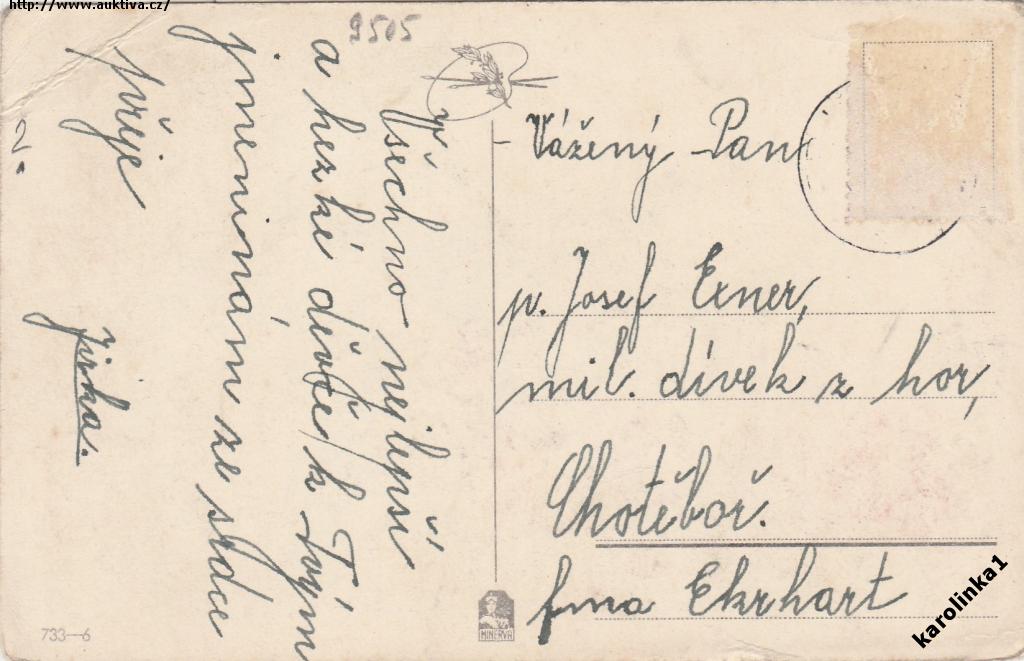 http://www.auktiva.cz/
9505
Všechno nejlepší
a hezké děvče/k Tvým
jmeninám ze srdce
přeje
Jirka.
2.
Vážený Pan
p. Josef Exner,
mil. dívek z hor,
Chotěboř.
fma Ekrhart
733—6
MINERVA
karolinka1